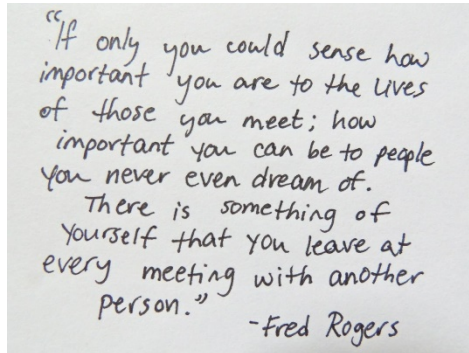 "If only you could sense how
important you are to the lives
of those you meet; how
important you can be to people
you never even dream of.
There is something of
yourself that you leave at
every meeting with another
person."
-Fred Rogers